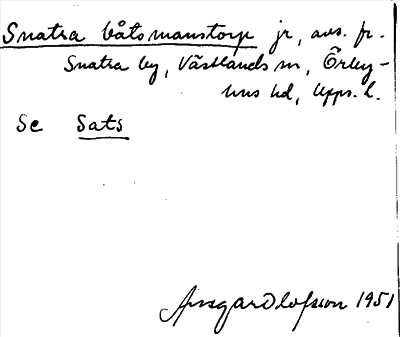 Snatra båtsmanstorp jr, avs. fr.
Snatra by, Västlands sn, Örby-
hus hd, Upps. l.
Se Sats
Ansgar Olofsson 1951